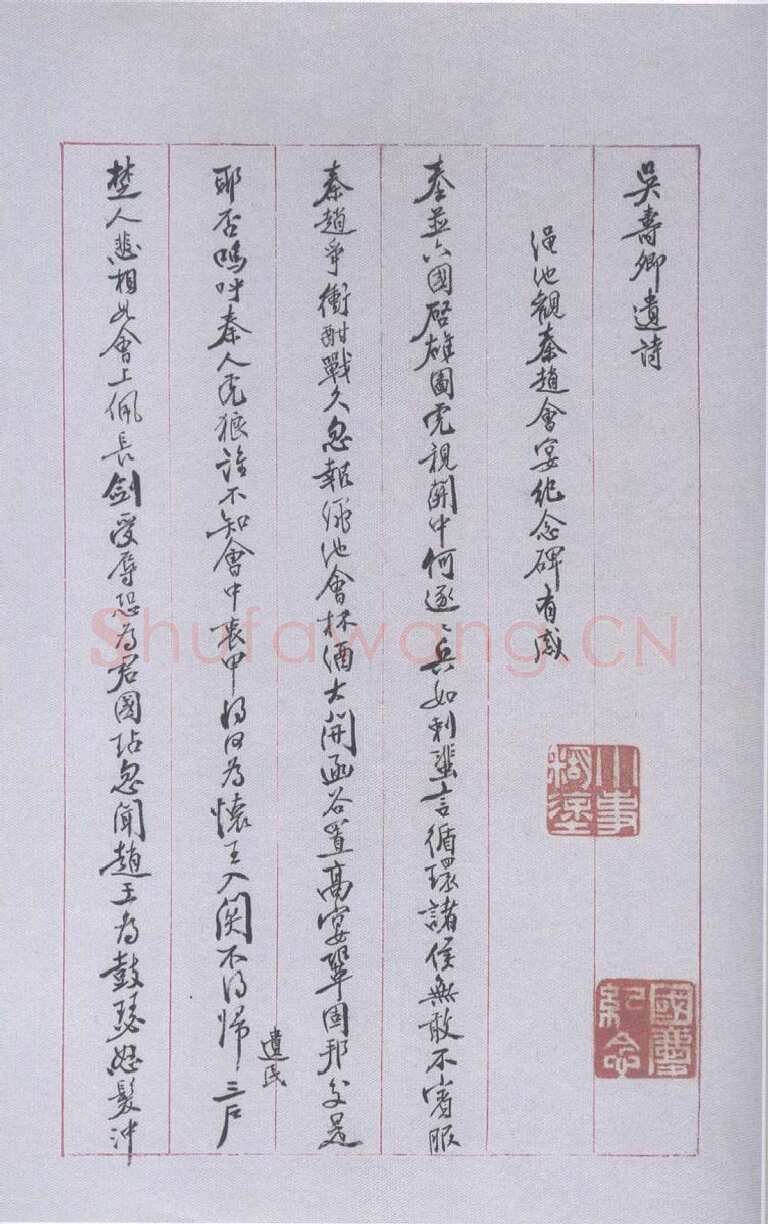 吳壽卿遺詩
澠池觀秦趙會宴紀念碑有感
秦並六國啓雄圖虎視關中何逐〻兵如利蜚言循環諸侯無敢不賓服
秦趙爭衡酣戰久忽報澠池會杯酒大開函谷置高宴鞏固邦交是
耶否嗚呼秦人虎狼誰不知會中衷甲得因為懷王入関不得歸三戶
遺民
楚人悲相如會上佩長劍受辱恐為君國玷忽聞趙王為鼓瑟怒髮沖
小事糊塗
國慶紀念
Shufawang.CN